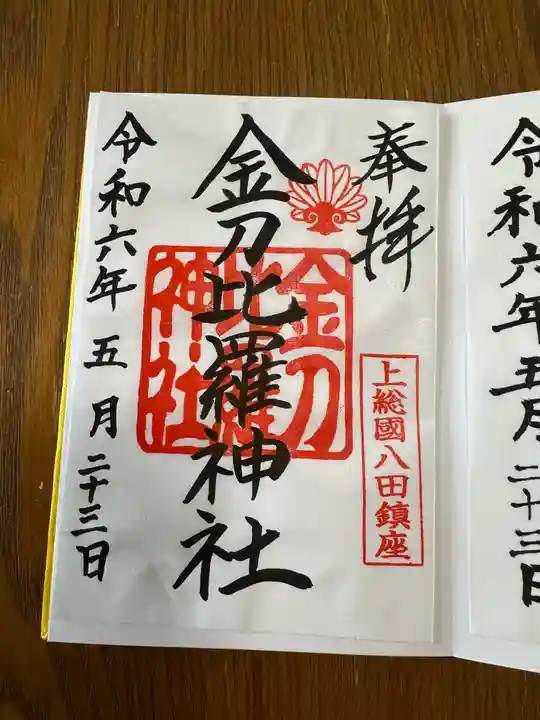 令和六年五月二十三日
奉拝
上総國八田鎮座
金刀比羅神社
金刀比羅神社
令和六年五月二十三日